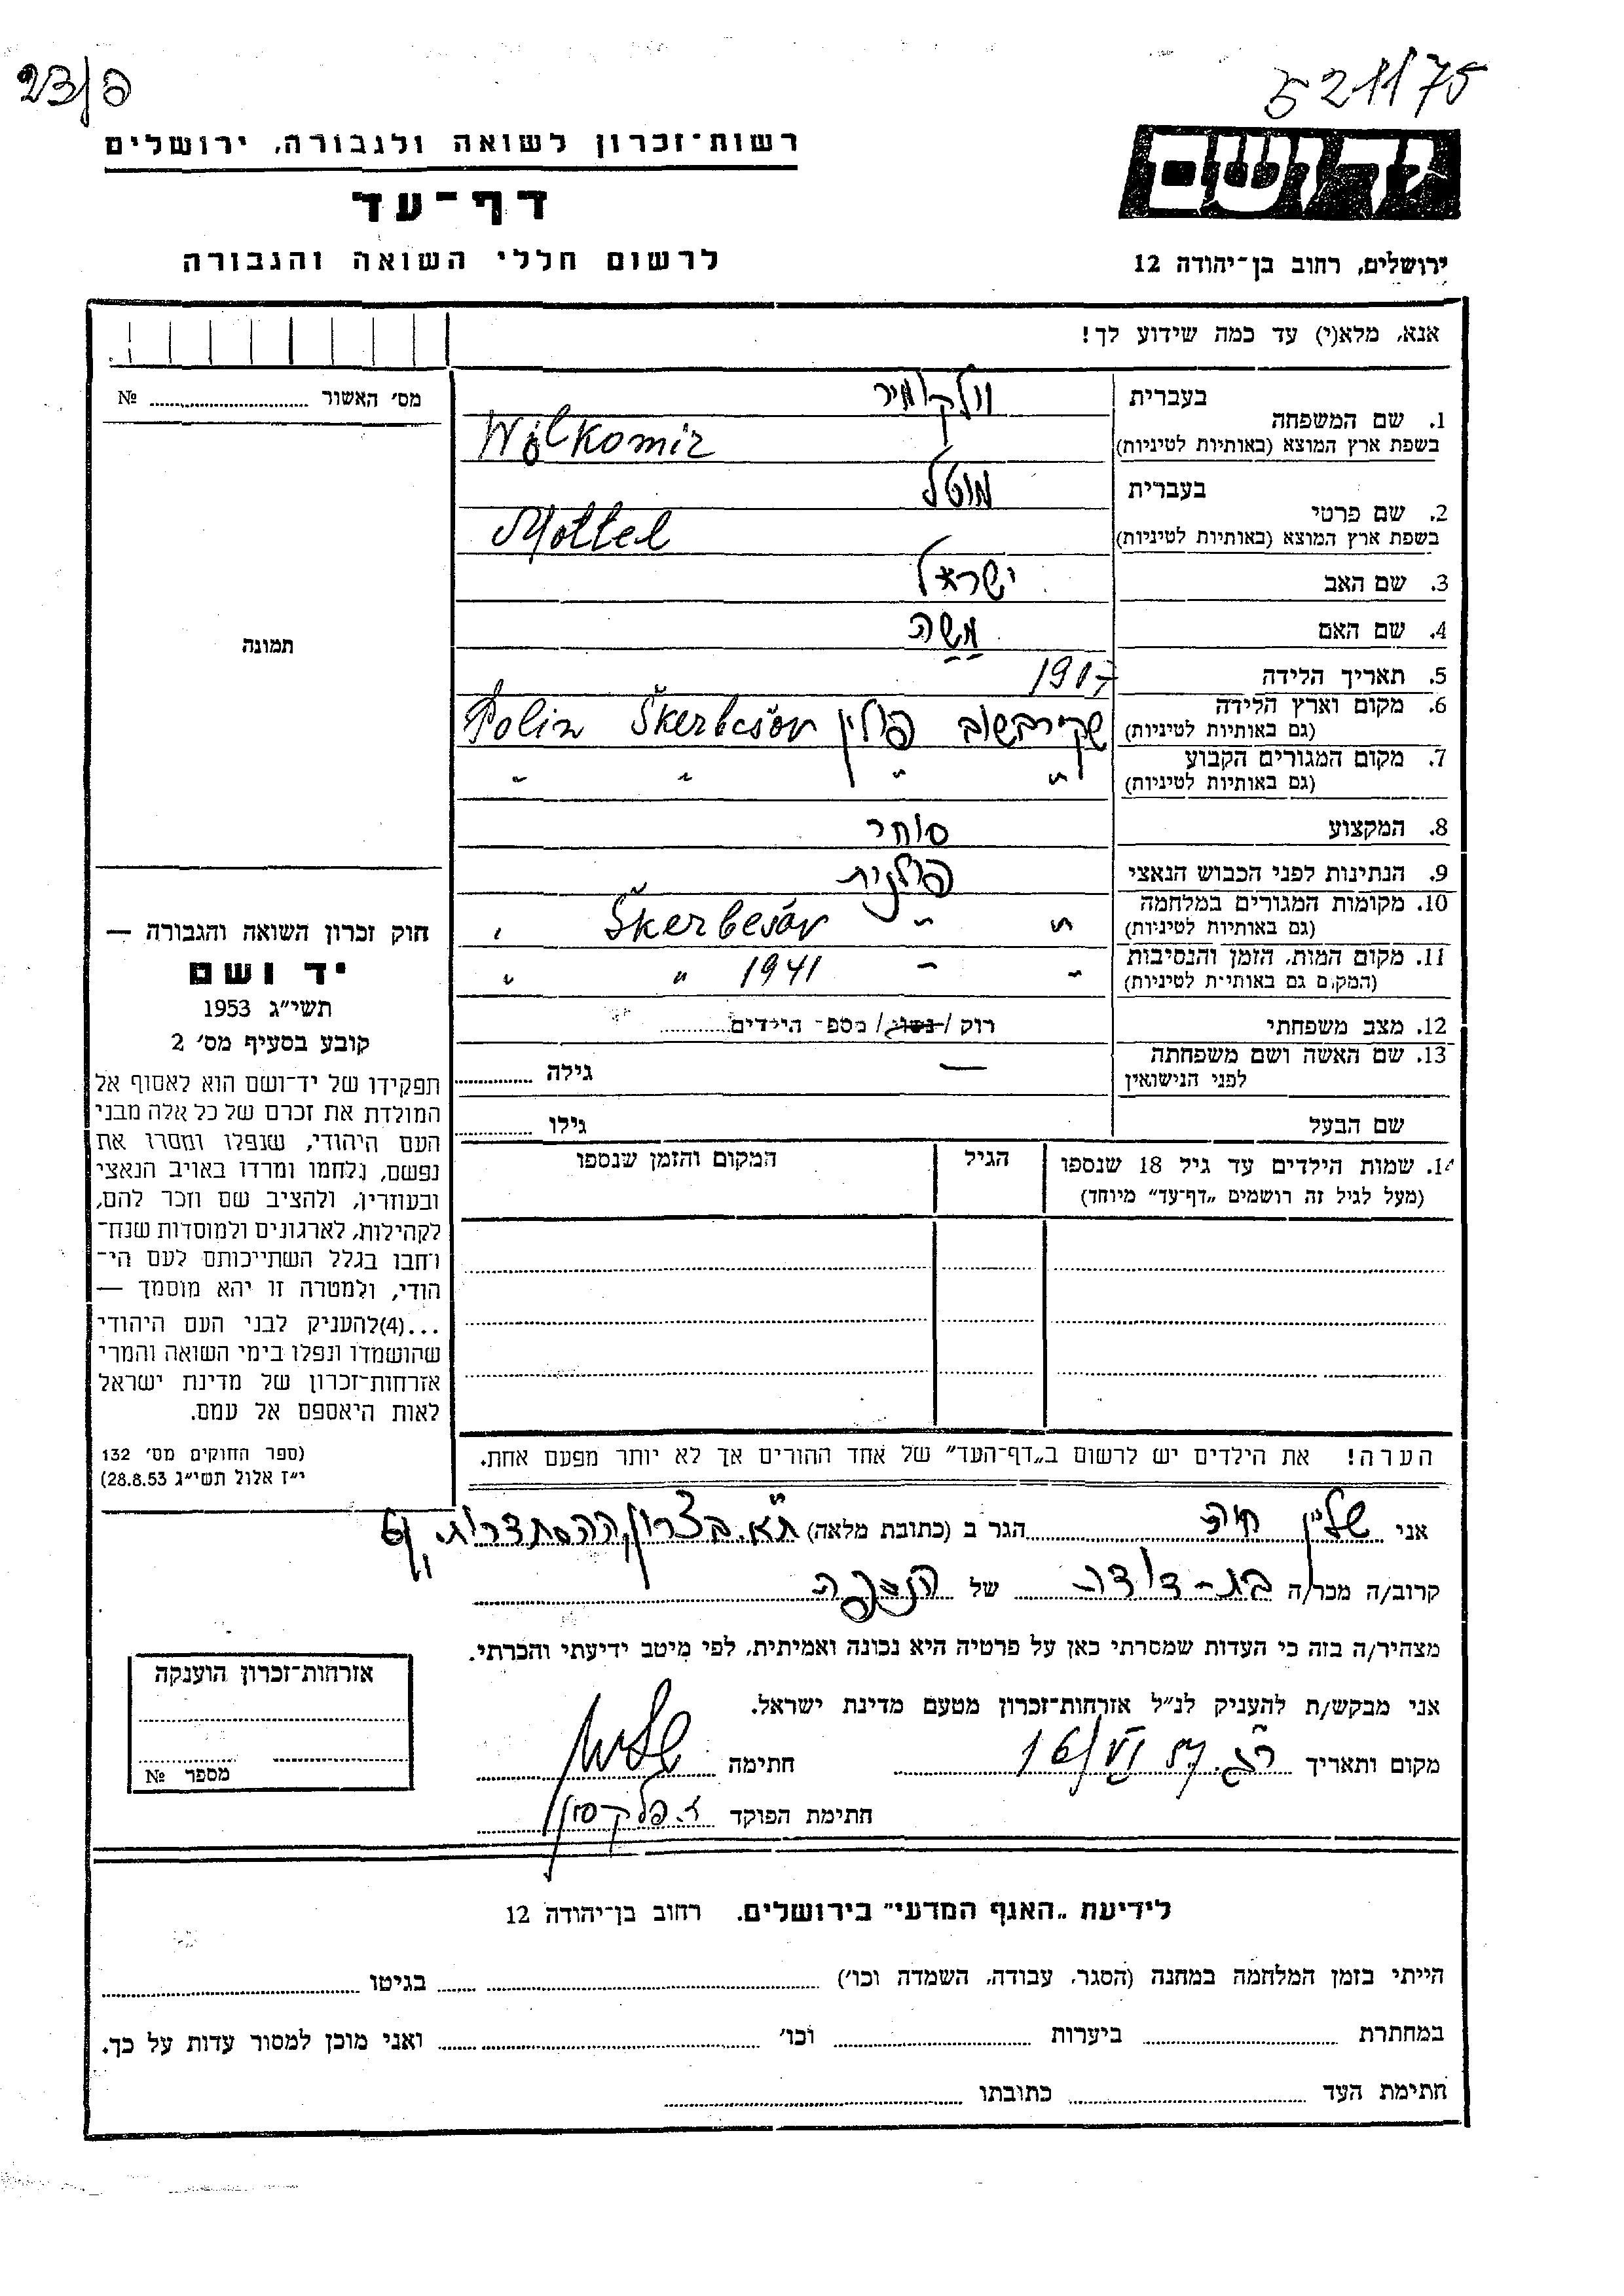 23/פ
521175
רשות־זכרון לשואה ולגבורה, ירושלים
דף־עד
לרשום חללי השואה והגבורה
יד ושם
ירושלים, רחוב בן־יהודה 12
אנא, מלא(י) עד כמה שידוע לך!
מס׳ האשור ........ №
תמונה
בעברית
1. שם המשפחה
בשפת ארץ המוצא (באותיות לטיניות)
וולקומיר
Wolkomir
בעברית
2. שם פרטי
בשפת ארץ המוצא (באותיות לטיניות)
מוטל
Mottel
3. שם האב ישראל
4. שם האם משה
5. תאריך הלידה 1917
6. מקום וארץ הלידה
(גם באותיות לטיניות)
פולין Škerbešov Polin
7. מקום המגורים הקבוע
(גם באותיות לטיניות)
" " " "
8. המקצוע סוחר
9. הנתינות לפני הכבוש הנאצי פולנית
10. מקומות המגורים במלחמה
(גם באותיות לטיניות)
" " Škerbešov "
11. מקום המות, הזמן והנסיבות
(המקום גם באותיות לטיניות)
" " 1941 " "
12. מצב משפחתי רוק / נשוי / מספ־ הילדים........
13. שם האשה ושם משפחתה
לפני הנישואין
— גילה ........
שם הבעל גילו ........
14. שמות הילדים עד גיל 18 שנספו
(מעל לגיל זה רושמים „דף־עד״ מיוחד)
הגיל
המקום והזמן שנספו
הערה! את הילדים יש לרשום ב„דף־העד״ של אחד ההורים אך לא יותר מפעם אחת.
חוק זכרון השואה והגבורה —
יד ושם
תשי״ג 1953
קובע בסעיף מס׳ 2
תפקידו של יד־ושם הוא לאסוף אל
המולדת את זכרם של כל אלה מבני
העם היהודי, שנפלו ומסרו את
נפשם, נלחמו ומרדו באויב הנאצי
ובעוזריו, ולהציב שם וזכר להם,
לקהילות, לארגונים ולמוסדות שנח־
רחבו בגלל השתייכותם לעם הי־
הודי, ולמטרה זו יהא מוסמך —
...(4)להעניק לבני העם היהודי
שהושמדו ונפלו בימי השואה והמרי
אזרחות־זכרון של מדינת ישראל
לאות היאספם אל עמם.
(ספר החוקים מס׳ 132
י״ז אלול תשי״ג 28.8.53)
אני חיה הגר ב (כתובת מלאה) ת״א. בצרון, ההסתדרות
קרוב/ה מכר/ה בת-דודה של הנספה
מצהיר/ה בזה כי העדות שמסרתי כאן על פרטיה היא נכונה ואמיתית, לפי מיטב ידיעתי והכרתי.
אני מבקש/ת להעניק לנ״ל אזרחות־זכרון מטעם מדינת ישראל.
מקום ותאריך 16/VI 57 חתימה
חתימת הפוקד
אזרחות־זכרון הוענקה
מספר №
לידיעת „האגף המדעי״ בירושלים. רחוב בן־יהודה 12
הייתי בזמן המלחמה במחנה (הסגר, עבודה, השמדה וכו׳) ........ בגיטו ........
במחתרת ........ ביערות ........ וכו׳ ........ ואני מוכן למסור עדות על כך.
חתימת העד ........ כתובתו ........